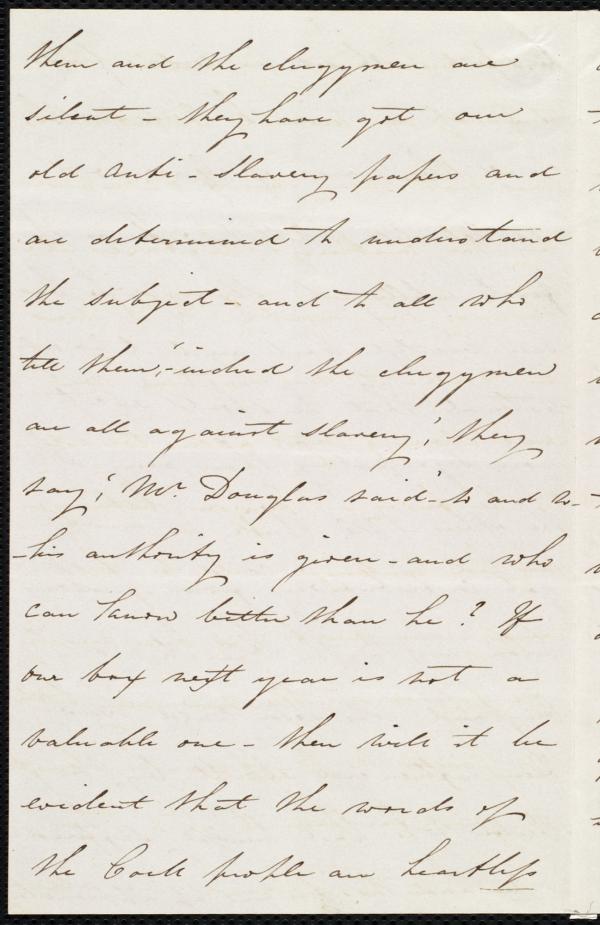 them and the clergymen are
silent - they have got our
old Anti-Slavery papers and
are determined to understand
the subject - and to all who
tell them, 'indeed the clergymen
are all against slavery,' they
say, 'Mr. Douglas said - so and so -
- his authority is given - and who
can know better than he? If
our box next year is not a
valuable one - then will it be
evident that the words of
the Cork people are heartless